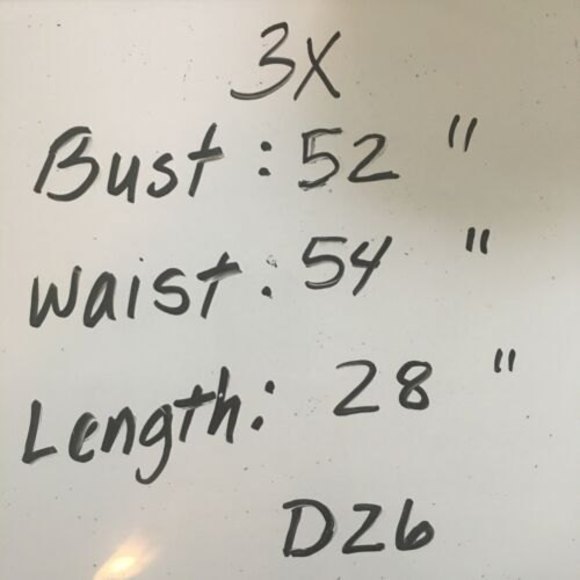 3X
Bust: 52 "
Waist: 54 "
Length: 28 "
DZ6